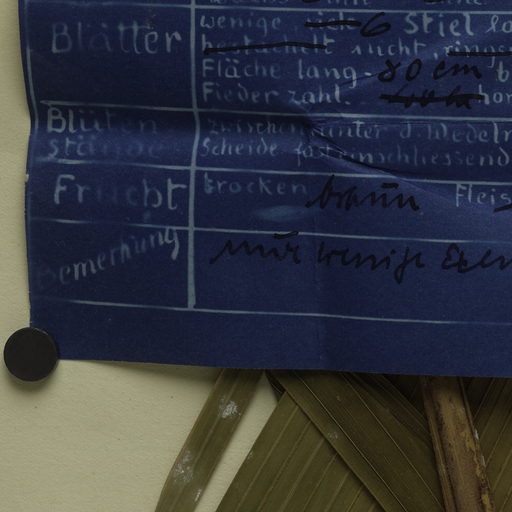 Blätter
wenige, sich 6 Stiel la
nicht, rings
Fläche lang. 80 cm b
Fieder zahl. hor
Blüten zwischen unter d. Wedeln
stände Scheide fast einschliessend
Frucht trocken braun Fleis
Bemerkung nur wenige Exem